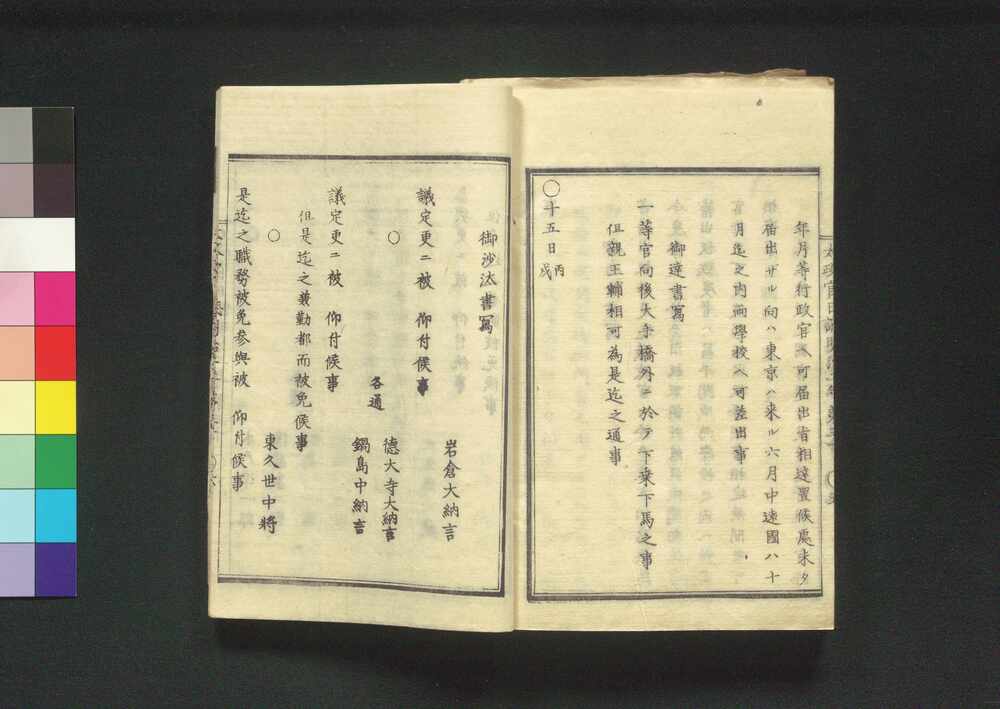 年月等行政官へ可届出旨相達置候處未タ
届出サル向ハ東京ハ来ル六月中遠國ハ十
月迄之内両學校ヘ可差出事
御達書寫
一等官向後大手橋外ニ於テ下乗下馬之事
但親王輔相可為是迄之通事
○十五日丙戌
御沙汰書寫
岩倉大納言
議定更ニ被 仰付候事
○
徳大寺大納言
鍋島中納言
各通
議定更ニ被 仰付候事
但是迄之兼勤都而被免候事
○
東久世中将
是迄之職務被免参與被 仰付候事